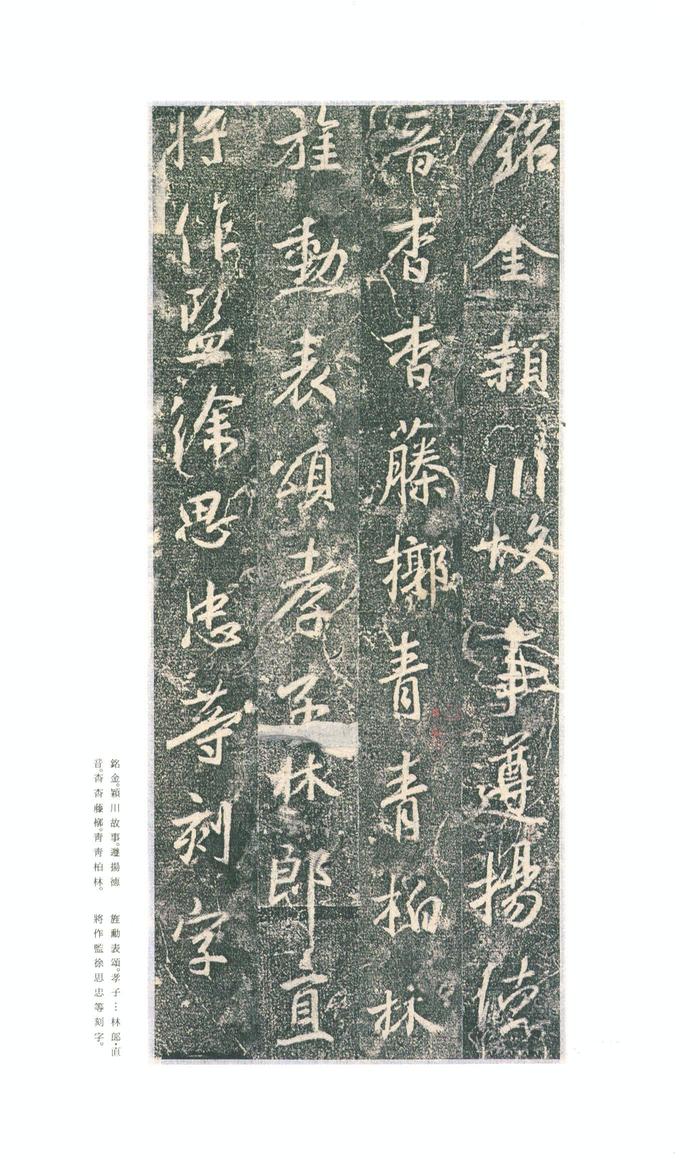 銘金穎川故事遵揚德
音杳杳藤槨青青栢林
旌勳表頌孝子林郎直
將作監徐思忠等刻字
銘金。穎川故事。遵揚德
音。杳杳藤槨。青青柏林。
旌勳表頌。孝子…林郎・直
將作監徐思忠等刻字。